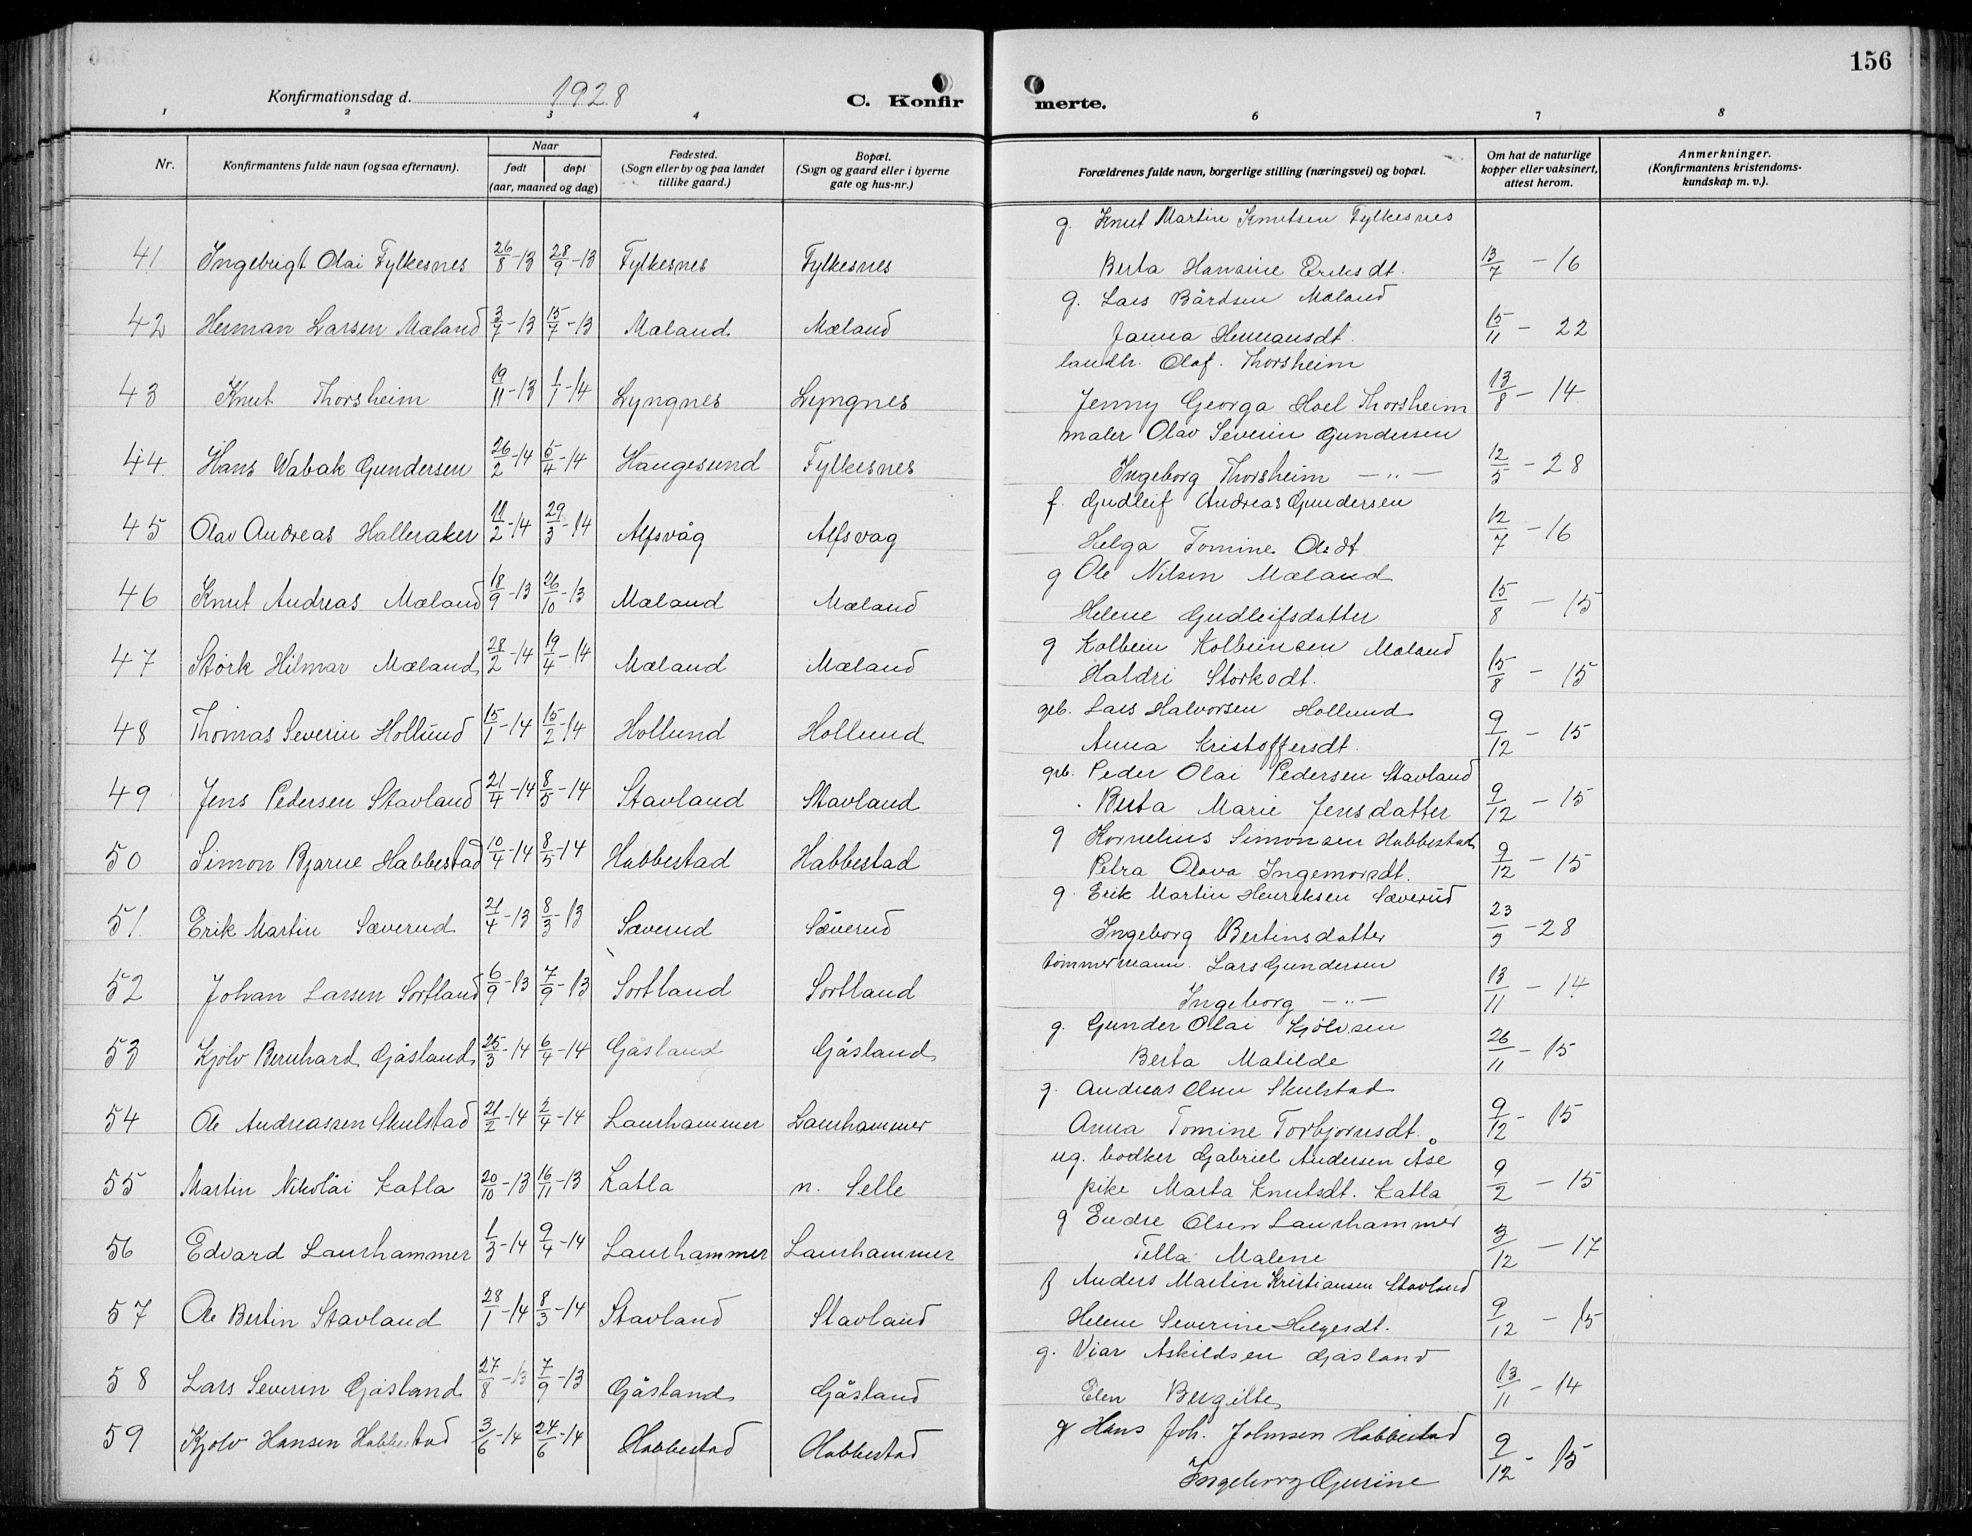 156
Konfirmationsdag d. 1928
C. Konfirmerte.
1 2 3 4 5 6 7 8
Nr.
Konfirmantens fulde navn (ogsaa efternavn).
Naar
født
døpt
(aar, maaned og dag)
Fødested.
(Sogn eller by og paa landet
tillike gaard.)
Bopæl.
(Sogn og gaard eller i byerne
gate og hus-nr.)
Forældrenes fulde navn, borgerlige stilling (næringsvei) og bopæl.
Om hat de naturlige
kopper eller vaksinert,
attest herom.
Anmerkninger.
(Konfirmantens kristendoms-
kundskap m. v.).
g. Knut Martin Knutsen Fylkesnes
41 Ingebrigt Olai Fylkesnes 26/8-13 28/9-13 Fylkesnes Fylkesnes Berta Hansine Eriksdt. 13/7 - 16
g. Lars Bårdsen Mæland
42 Herman Larsen Mæland 3/7-13 15/7-13 Mæland Mæland Janna Hermansdt. 15/11 - 22
landh. Olaf. Thorsheim
43 Knut Thorsheim 19/11-13 1/1-14 Lyngnes Lyngnes Jenny Georga Hoel Thorsheim 13/8 - 14
maler Olav Severin Gundersen
44 Hans Wabak Gundersen 26/2-14 5/4-14 Haugesund Fylkesnes Ingeborg Thorsheim —„— 12/5 - 28
f. Gudleif Andreas Gundersen
45 Olav Andreas Halleraker 11/2-14 29/3-14 Alfsvåg Alfsvag Helga Tomine Olsdt 12/7 - 16
g Ole Nilsen Mæland
46 Knut Andreas Mæland 18/9-13 26/10-13 Mæland Mæland Helene Gudleifsdatter 15/8 - 15
g Kolbein Kolbeinsen Mæland
47 Størk Hilmar Mæland 28/2-14 19/4-14 Mæland Mæland Haldri Størksdt. 15/8 - 15
grb. Lars Halvorsen Hollund
48 Thomas Severin Hollund 15/1-14 15/2-14 Hollund Hollund Anna Kristoffersdt. 9/12 - 15
grb. Peder Olai Pedersen Stavland
49 Jens Pedersen Stavland 21/4-14 8/5-14 Stavland Stavland Berta Marie Jensdatter 9/12 - 15
g Kornelius Simonsen Habbestad
50 Simon Bjarne Habbestad 10/4-14 8/5-14 Habbestad Habbestad Petra Olava Ingemorsdt. 9/12 - 15
g. Erik Martin Henriksen Sæverud
51. Erik Martin Sæverud 21/4-13 8/3-13 Sæverud Sæverud Ingeborg Bertinsdatter 23/5 - 28
tømmermann. Lars Gundersen
52 Johan Larsen Sortland 6/9-13 7/9-13 Sortland Sortland Ingeborg —„— 13/11 - 14
g. Gunder Olai Kjølvsen
53 Kjölv Bernhard Gåsland 25/3-14 6/4-14 Gåsland Gåsland Berta Matilde 26/11 - 15
g. Andreas Olsen Skulstad
54 Ole Andreassen Skulstad 21/2-14 2/4-14 Laurhammer Laurhammer Anna Tomine Torbjørnsdt. 9/12 - 15
ug. bødker Gabriel Andersen Åse
55 Martin Nikolai Katla 20/10-13 16/11-13 Katla n. Selle pike Marta Knutsdt. Katla 9/2 - 15
g Endre Olsen Laurhammer
56 Edvard Laurhammer 1/3-14 9/4-14 Laurhammer Laurhammer Tella Malene 3/12 - 17
f Anders Martin Kristiansen Stavland
57 Ole Bertin Stavland 28/1-14 8/3-14 Stavland Stavland Helene Severine Helgesdt. 9/12 - 15
g. Viar Askildsen Gåsland
58 Lars Severin Gåsland 27/8-13 7/9-13 Gåsland Gåsland Elen Bergitte 13/11 - 14
g Hans Joh. Johnsen Habbestad
59 Kjølv Hansen Habbestad 3/6-14 24/6-14 Habbestad Habbestad Ingeborg Gurine 9/12 - 15